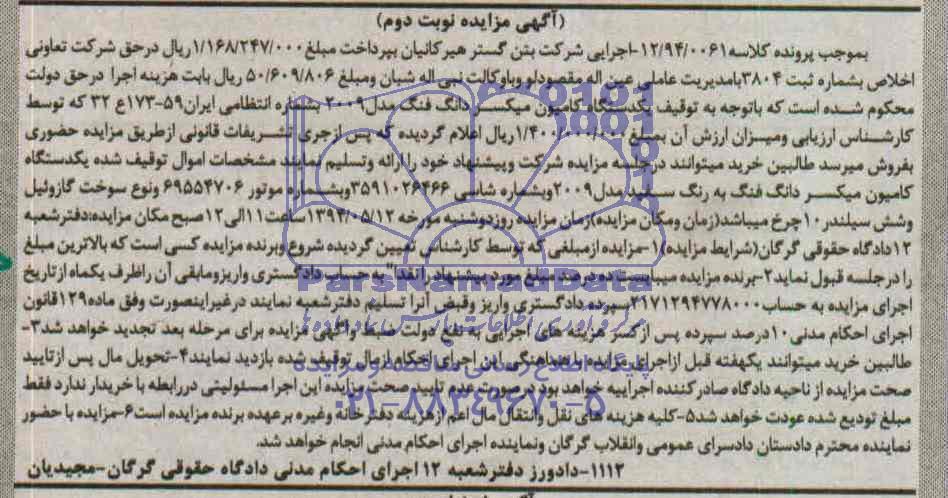 (آگهی مزایده نوبت دوم)
بموجب پرونده کلاسه ۱۲/۹۴/۰۰۶۱-اجرایی شرکت بتن گستر هیرکانیان بپرداخت مبلغ ۱/۱۶۸/۲۴۷/۰۰۰ریال درحق شرکت تعاونی
اخلاص بشماره ثبت ۳۸۰۴بامدیریت عاملی عین اله مقصودلو وباوکالت نبی اله شبان ومبلغ ۵۰/۶۰۹/۸۰۶ ریال بابت هزینه اجرا درحق دولت
محکوم شده است که باتوجه به توقیف یکدستگاه کامیون میکسر دانگ فنگ مدل۲۰۰۹ بشماره انتظامی ایران۵۹-۱۷۳ع ۳۲ که توسط
کارشناس ارزیابی ومیزان ارزش آن بمبلغ ۱/۴۰۰/۰۰۰/۰۰۰ریال اعلام گردیده که پس ازجری تشریفات قانونی ازطریق مزایده حضوری
بفروش میرسد طالبین خرید میتوانند درجلسه مزایده شرکت وپیشنهاد خود را ارائه وتسلیم نمایند مشخصات اموال توقیف شده یکدستگاه
کامیون میکسر دانگ فنگ به رنگ سفید مدل۲۰۰۹وبشماره شاسی ۳۵۹۱۰۲۶۴۶۶وبشماره موتور ۶۹۵۵۴۷۰۶ ونوع سوخت گازوئیل
وشش سیلندر۱۰چرخ میباشد(زمان ومکان مزایده)زمان مزایده روزدوشنبه مورخه ۱۳۹۴/۰۵/۱۲ساعت۱۱الی۱۲صبح مکان مزایده:دفترشعبه
۱۲دادگاه حقوقی گرگان(شرایط مزایده)۱-مزایده ازمبلغی که توسط کارشناس تعیین گردیده شروع وبرنده مزایده کسی است که بالاترین مبلغ
را درجلسه قبول نماید۲-برنده مزایده میبایست ده درصد مبلغ مورد پیشنهاد را نقدا" به حساب دادگستری واریزومابقی آن راظرف یکماه ازتاریخ
اجرای مزایده به حساب ۲۱۷۱۲۹۴۷۷۸۰۰۰سپرده دادگستری واریز وقبض آنرا تسلیم دفترشعبه نمایند درغیراینصورت وفق ماده۱۲۹قانون
اجرای احکام مدنی ۱۰درصد سپرده پس ازکسر هزینه های اجرایی به نفع دولت ضبط واگهی مزایده برای مرحله بعد تجدید خواهد شد۳-
طالبین خرید میتوانند یکهفته قبل ازاجرای مزایده باهماهنگی این اجرای احکام ازمال توقیف شده بازدید نمایند۴-تحویل مال پس ازتایید
صحت مزایده از ناحیه دادگاه صادرکننده اجراییه خواهد بود درصورت عدم تایید صحت مزایده این اجرا مسئولیتی دررابطه با خریدار ندارد فقط
مبلغ تودیع شده عودت خواهد شد۵-کلیه هزینه های نقل وانتقال مال اعم ازهزینه دفترخانه وغیره برعهده برنده مزایده است۶-مزایده با حضور
نماینده محترم دادستان دادسرای عمومی وانقلاب گرگان ونماینده اجرای احکام مدنی انجام خواهد شد.
۱۱۱۲-دادورز دفترشعبه ۱۲ اجرای احکام مدنی دادگاه حقوقی گرگان-مجیدیان
ParsNamadData
پایگاه اطلاع رسانی مناقصه و مزایده
۰۲۱-۸۸۳۴۹۶۷۰-۵